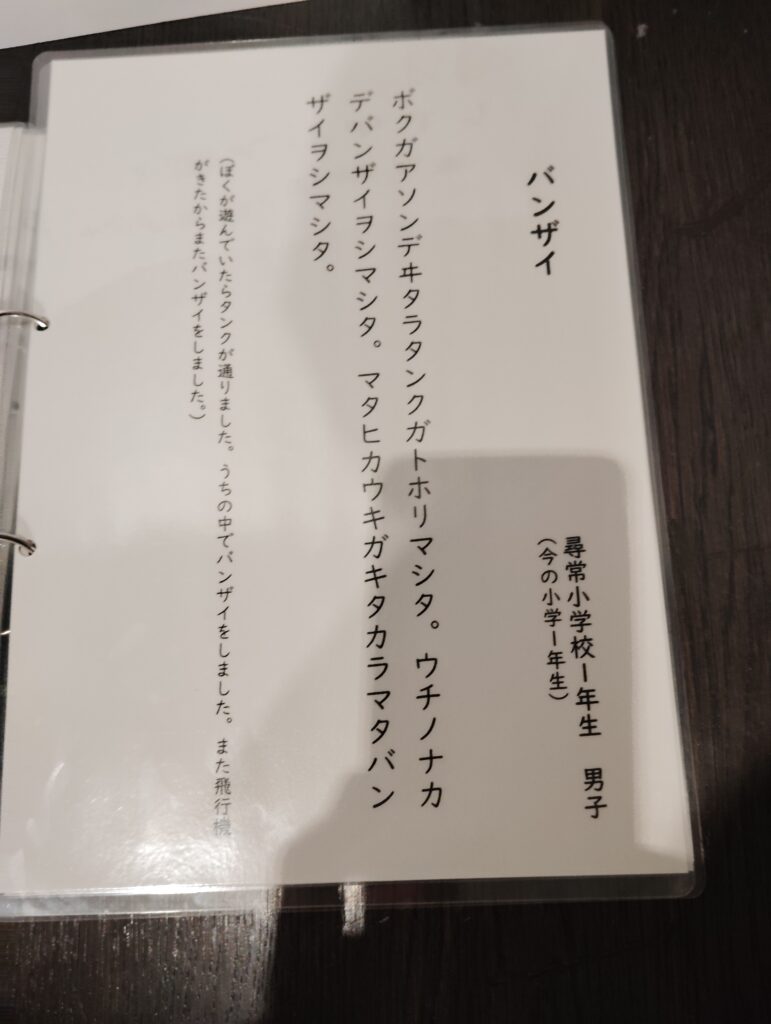 バンザイ
尋常小学校1年生　男子
(今の小学1年生)
ボクガアソンデヰタラタンクガトホリマシタ。ウチノナカ
デバンザイヲシマシタ。マタヒカウキガキタカラマタバン
ザイヲシマシタ。
(ぼくが遊んでいたらタンクが通りました。うちの中でバンザイをしました。また飛行機
がきたからまたバンザイをしました。)